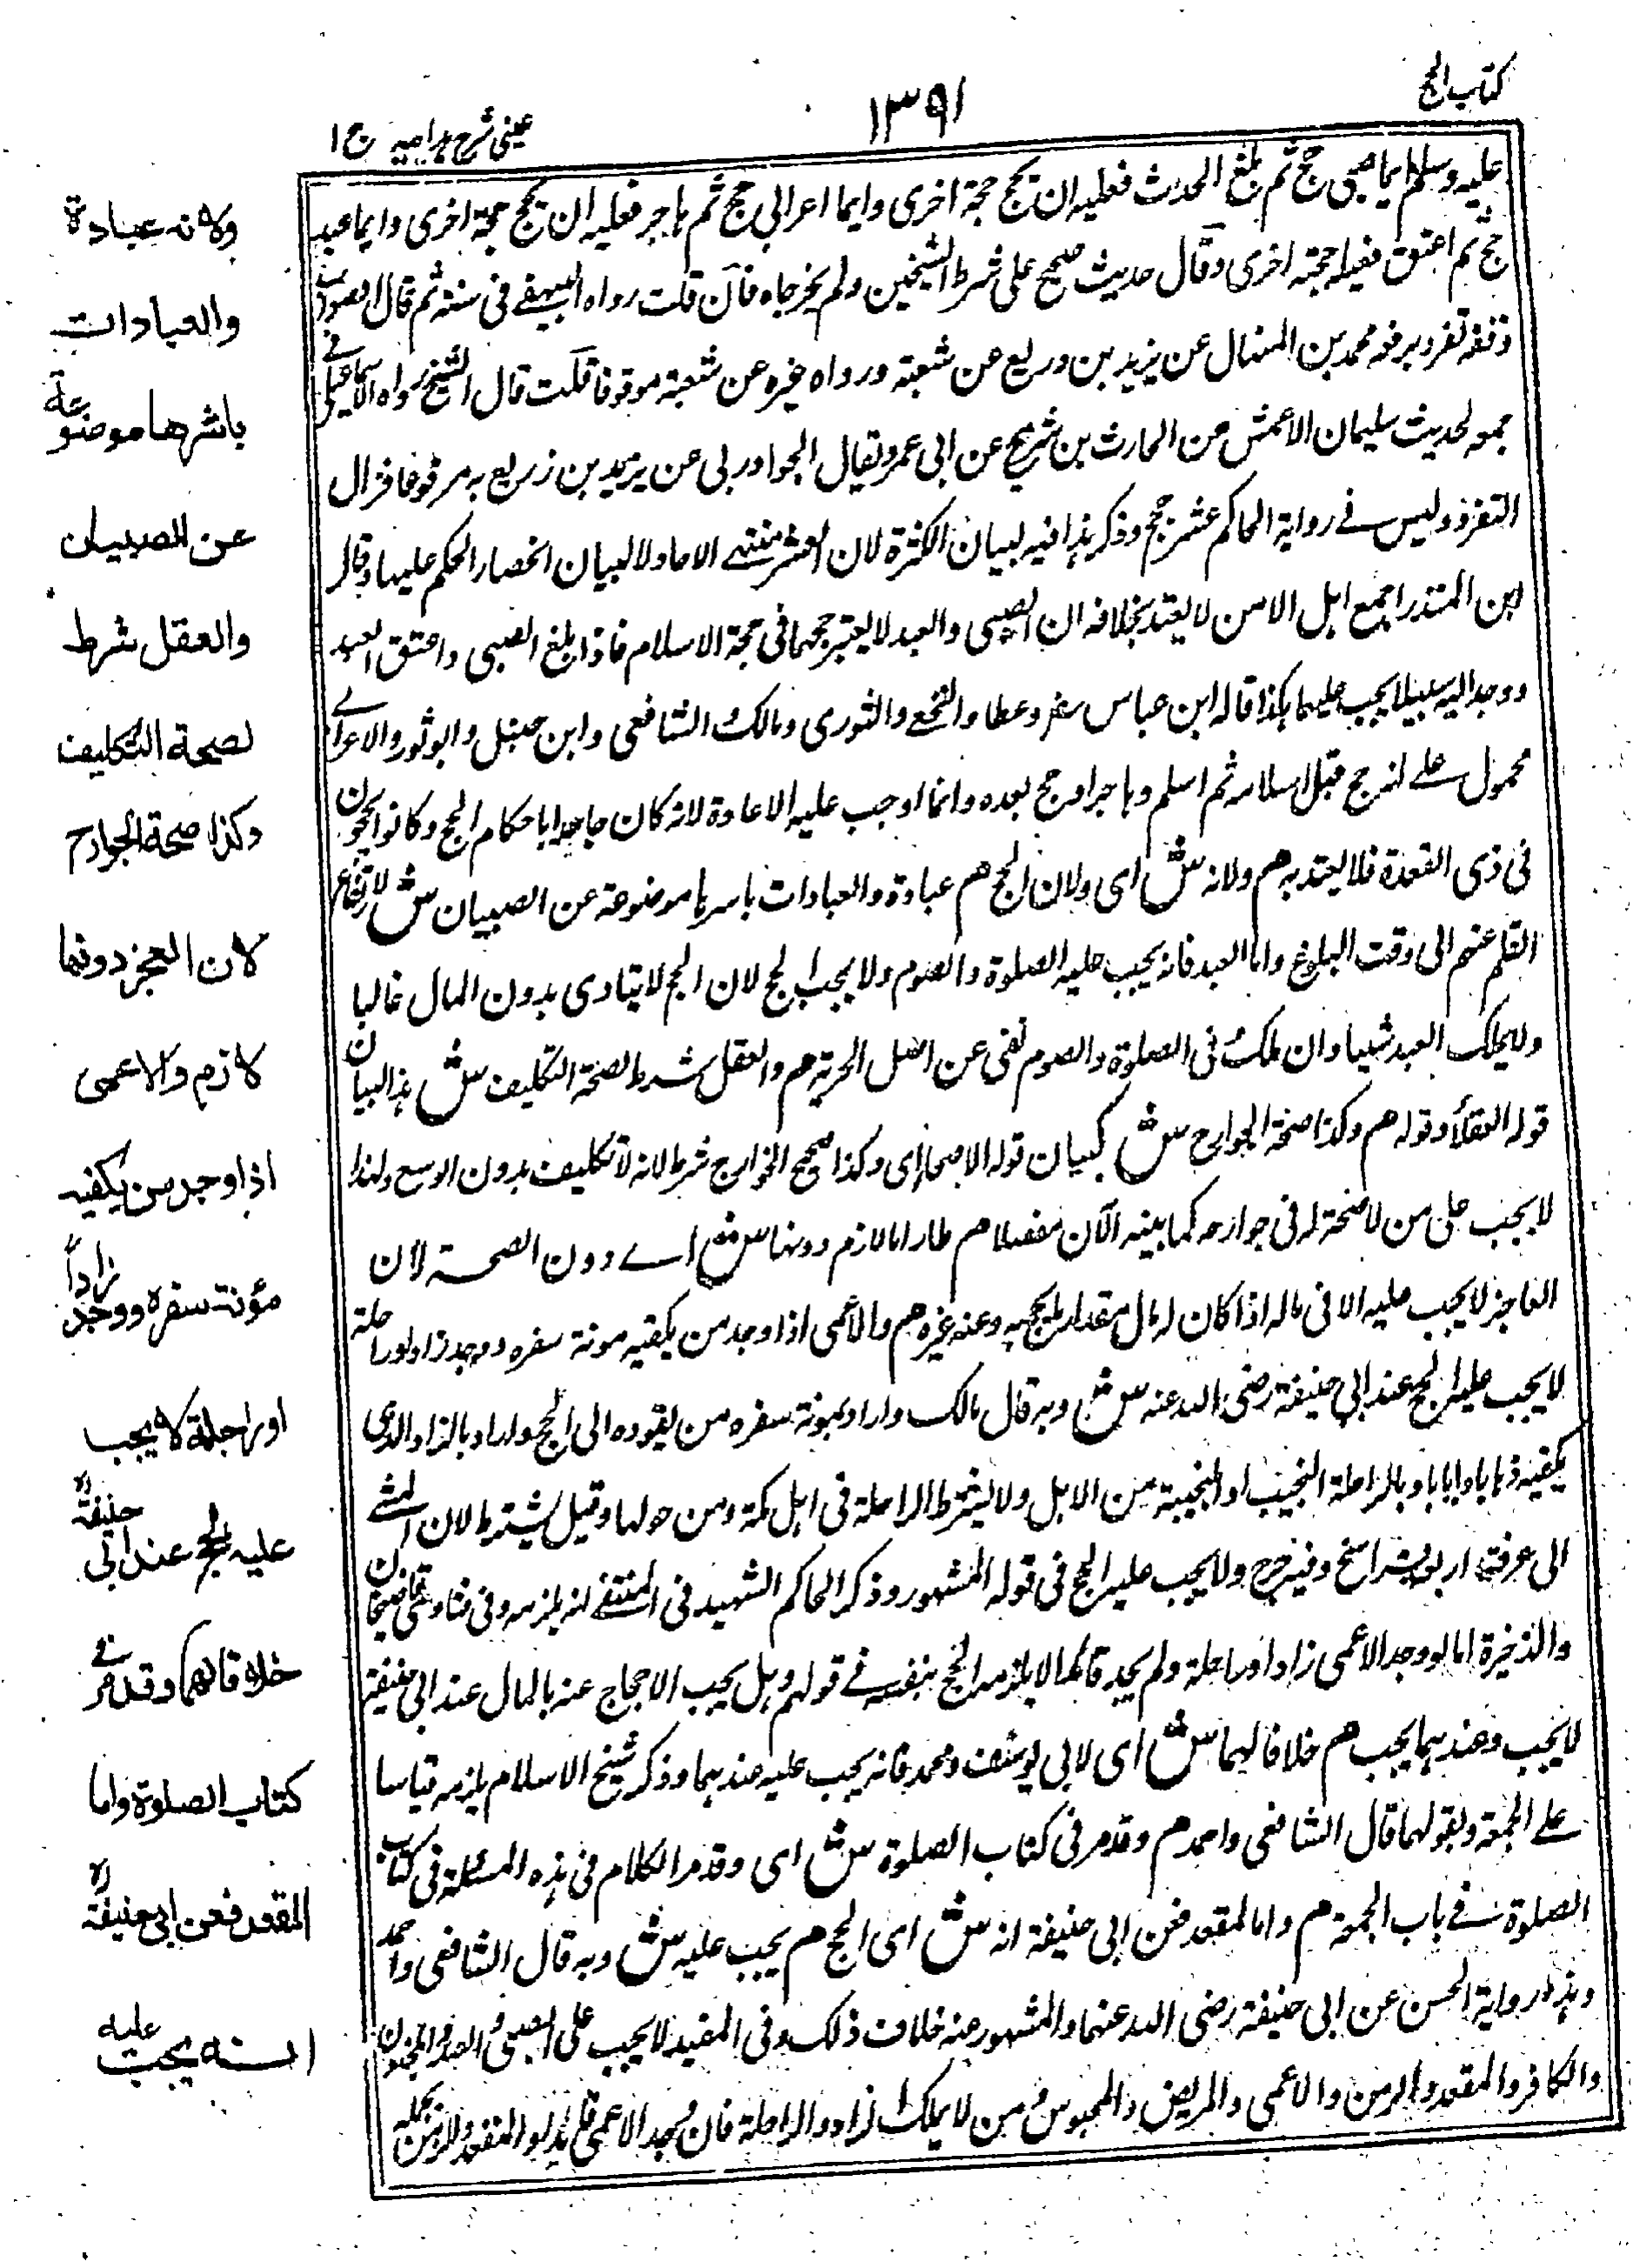 كتاب الحج
١٣٩١
عينى شرح هدايه ج ١
عليه وسلم ايما صبى حج ثم بلغ الحدث فعليه ان يحج حجة اخرى وايما اعرابي حج ثم هاجر فعليه ان يحج حجة اخرى وايما عبد
حج ثم اعتق فعليه حجة اخرى وقال حديث صحيح على شرط الشيخين ولم يخرجاه فان قلت رواه البيهقے فى سننه ثم قال الصواب
وقفه تفرد برفعه محمد بن المنهال عن يزيد بن وريع عن شعبة ورواه غيره عن شعبة موقوفا قلت قال الشيخ رواه الاسماعيلى فے
جمعه لحديث سليمان الاعمش من الحارث بن شريح عن ابى عمر ويقال الجوادربى عن يزيد بن زريع به مرفوعا فزال
التفرد وليس فے رواية الحاكم عشر حجج وذكر هذا فيه لبيان الكثرة لان العشر منتهے الاحاد لا لبيان انحصار الحكم عليها وقال
ابن المنذر اجمع اهل الا من لا يعتد بخلافه ان الصبى والعبد لا يعتبر حجهما فى حجة الاسلام فاذا بلغ الصبى واعتق العبد
ووجد اليه سبيلا يجب عليهما هكذا قاله ابن عباس وعطا والنخعے والثورى ومالك والشافعى وابن حنبل وابو ثور والاعرابے
محمول علے انه حج قبل اسلامه ثم اسلم وهاجر او حج بعده وانما اوجب عليه الاعادة لانه كان جاهدا باحكام الحج وكانوا يحجون
فى ذى القعدة فلا يعتد به هم ولانه ش اى ولان الحج هم عبادة والعبادات باسرها موضوعة عن الصبيان ش لارتفاع
القلم عنهم الى وقت البلوغ واما العبد فانه يجب عليه الصلوة والصوم ولا يجب الحج لان الحج لا يتادى بدون المال غالبا
ولا يملك العبد شيئا وان ملك فى الصلوة والصوم نفى عن اصل الحرية هم والعقل شرط لصحة التكليف ش هذا البيان
قوله العقلاء وقوله هم وكذا صحة الجوارح ش كبيان قوله الاصحاء اى وكذا صحيح الجوارح شرط لانه لا تكليف بدون الوسع ولهذا
لا يجب على من لا صحة له فى جوارحه كما يبينه الآن مفصلا هم لازم دونها ش اے دون الصحة لان
العاجز لا يجب عليه الا فى ماله اذا كان له مال مقدار ما يحج به وعنه غيره هم والاعمى اذا وجد من يكفيه مونة سفره ووجد زادا وراحلة
لا يجب عليه الحج عند ابى حنيفة رضى الله عنه ش وبه قال مالك واراد بمونة سفره من يقوده الى الحج واراد بالزاد الذى
يكفيه ذهابا وايابا وبالراحلة النجيب او النجيبة من الابل ولا يشترط الراحلة فى اهل مكة ومن حولها وقيل يشترط لان المشے
الى عرفة اربعة فراسخ وفيه حرج ولا يجب عليه الحج فى قوله المشهور وذكر الحاكم الشهيد فى المنتقے انه يلزمه وفى فتاوى قاضيخان
والذخيرة اما لو وجد الاعمى زادا وراحلة ولم يجد قائدا لا يلزمه الحج بنفسه فے قولهم وهل يجب الاحجاج عنه بالمال عند ابى حنيفة
لا يجب وعندهما يجب هم خلافا لهما ش اى لابى يوسف ومحمد فانه يجب عليه عندهما وذكر شيخ الاسلام يلزمه قياسا
علے الجمعة وبقولهما قال الشافعى واحمد هم وقد مر فى كتاب الصلوة ش اى وقد مر الكلام فى هذه المسئلة فى كتاب
الصلوة فے باب الجمعة هم واما المقعد فعن ابى حنيفة انه ش اى الحج هم يجب عليه ش وبه قال الشافعى واحمد
وهذه رواية الحسن عن ابى حنيفة رضى الله عنهما والمشهور عنه خلاف ذلك وفى المفيد لا يجب على الصبى والعبد والمجنون
والكافر والمقعد والزمن والاعمى والمريض والمحبوس ومن لا يملك الزاد والراحلة فان وجد الاعمى
ولانه عبادة
والعبادات
باشرها موضوعة
عن الصبيان
والعقل شرط
لصحة التكليف
وكذا صحة الجوارح
لان العجز دونها
لازم والاعمى
اذا وجد من يكفيه
مؤنة سفره ووجد زاداً
او راحلة لا يجب
عليه الحج عند ابى حنيفة رح
خلافا لهما وقد مر فے
كتاب الصلوة واما
المقعد فعن ابى حنيفة رح
انه يجب عليه